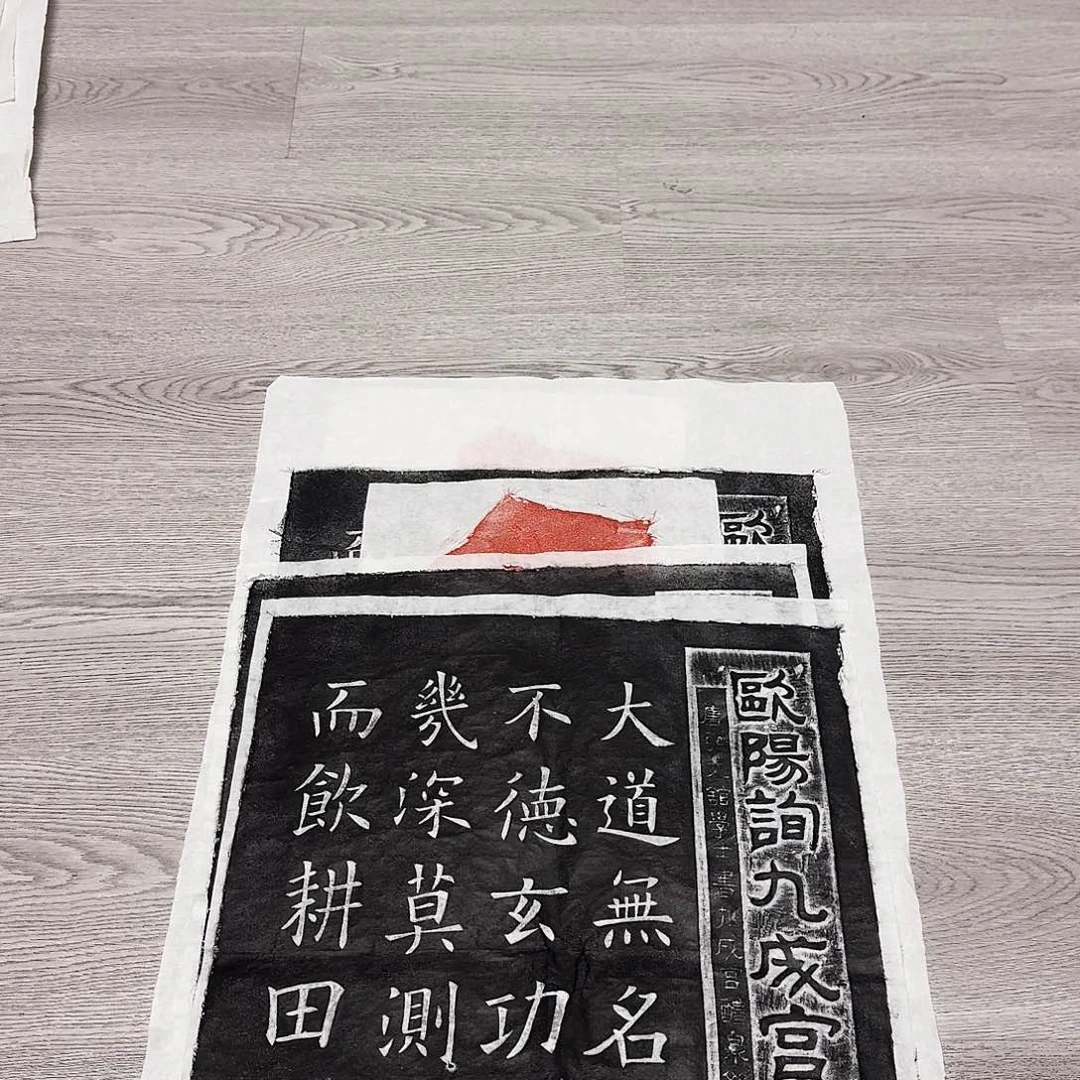 歐陽詢九成宮
館學士書九成宮醴泉
大道無名
不德玄功
幾深莫測
而飲耕田
歐